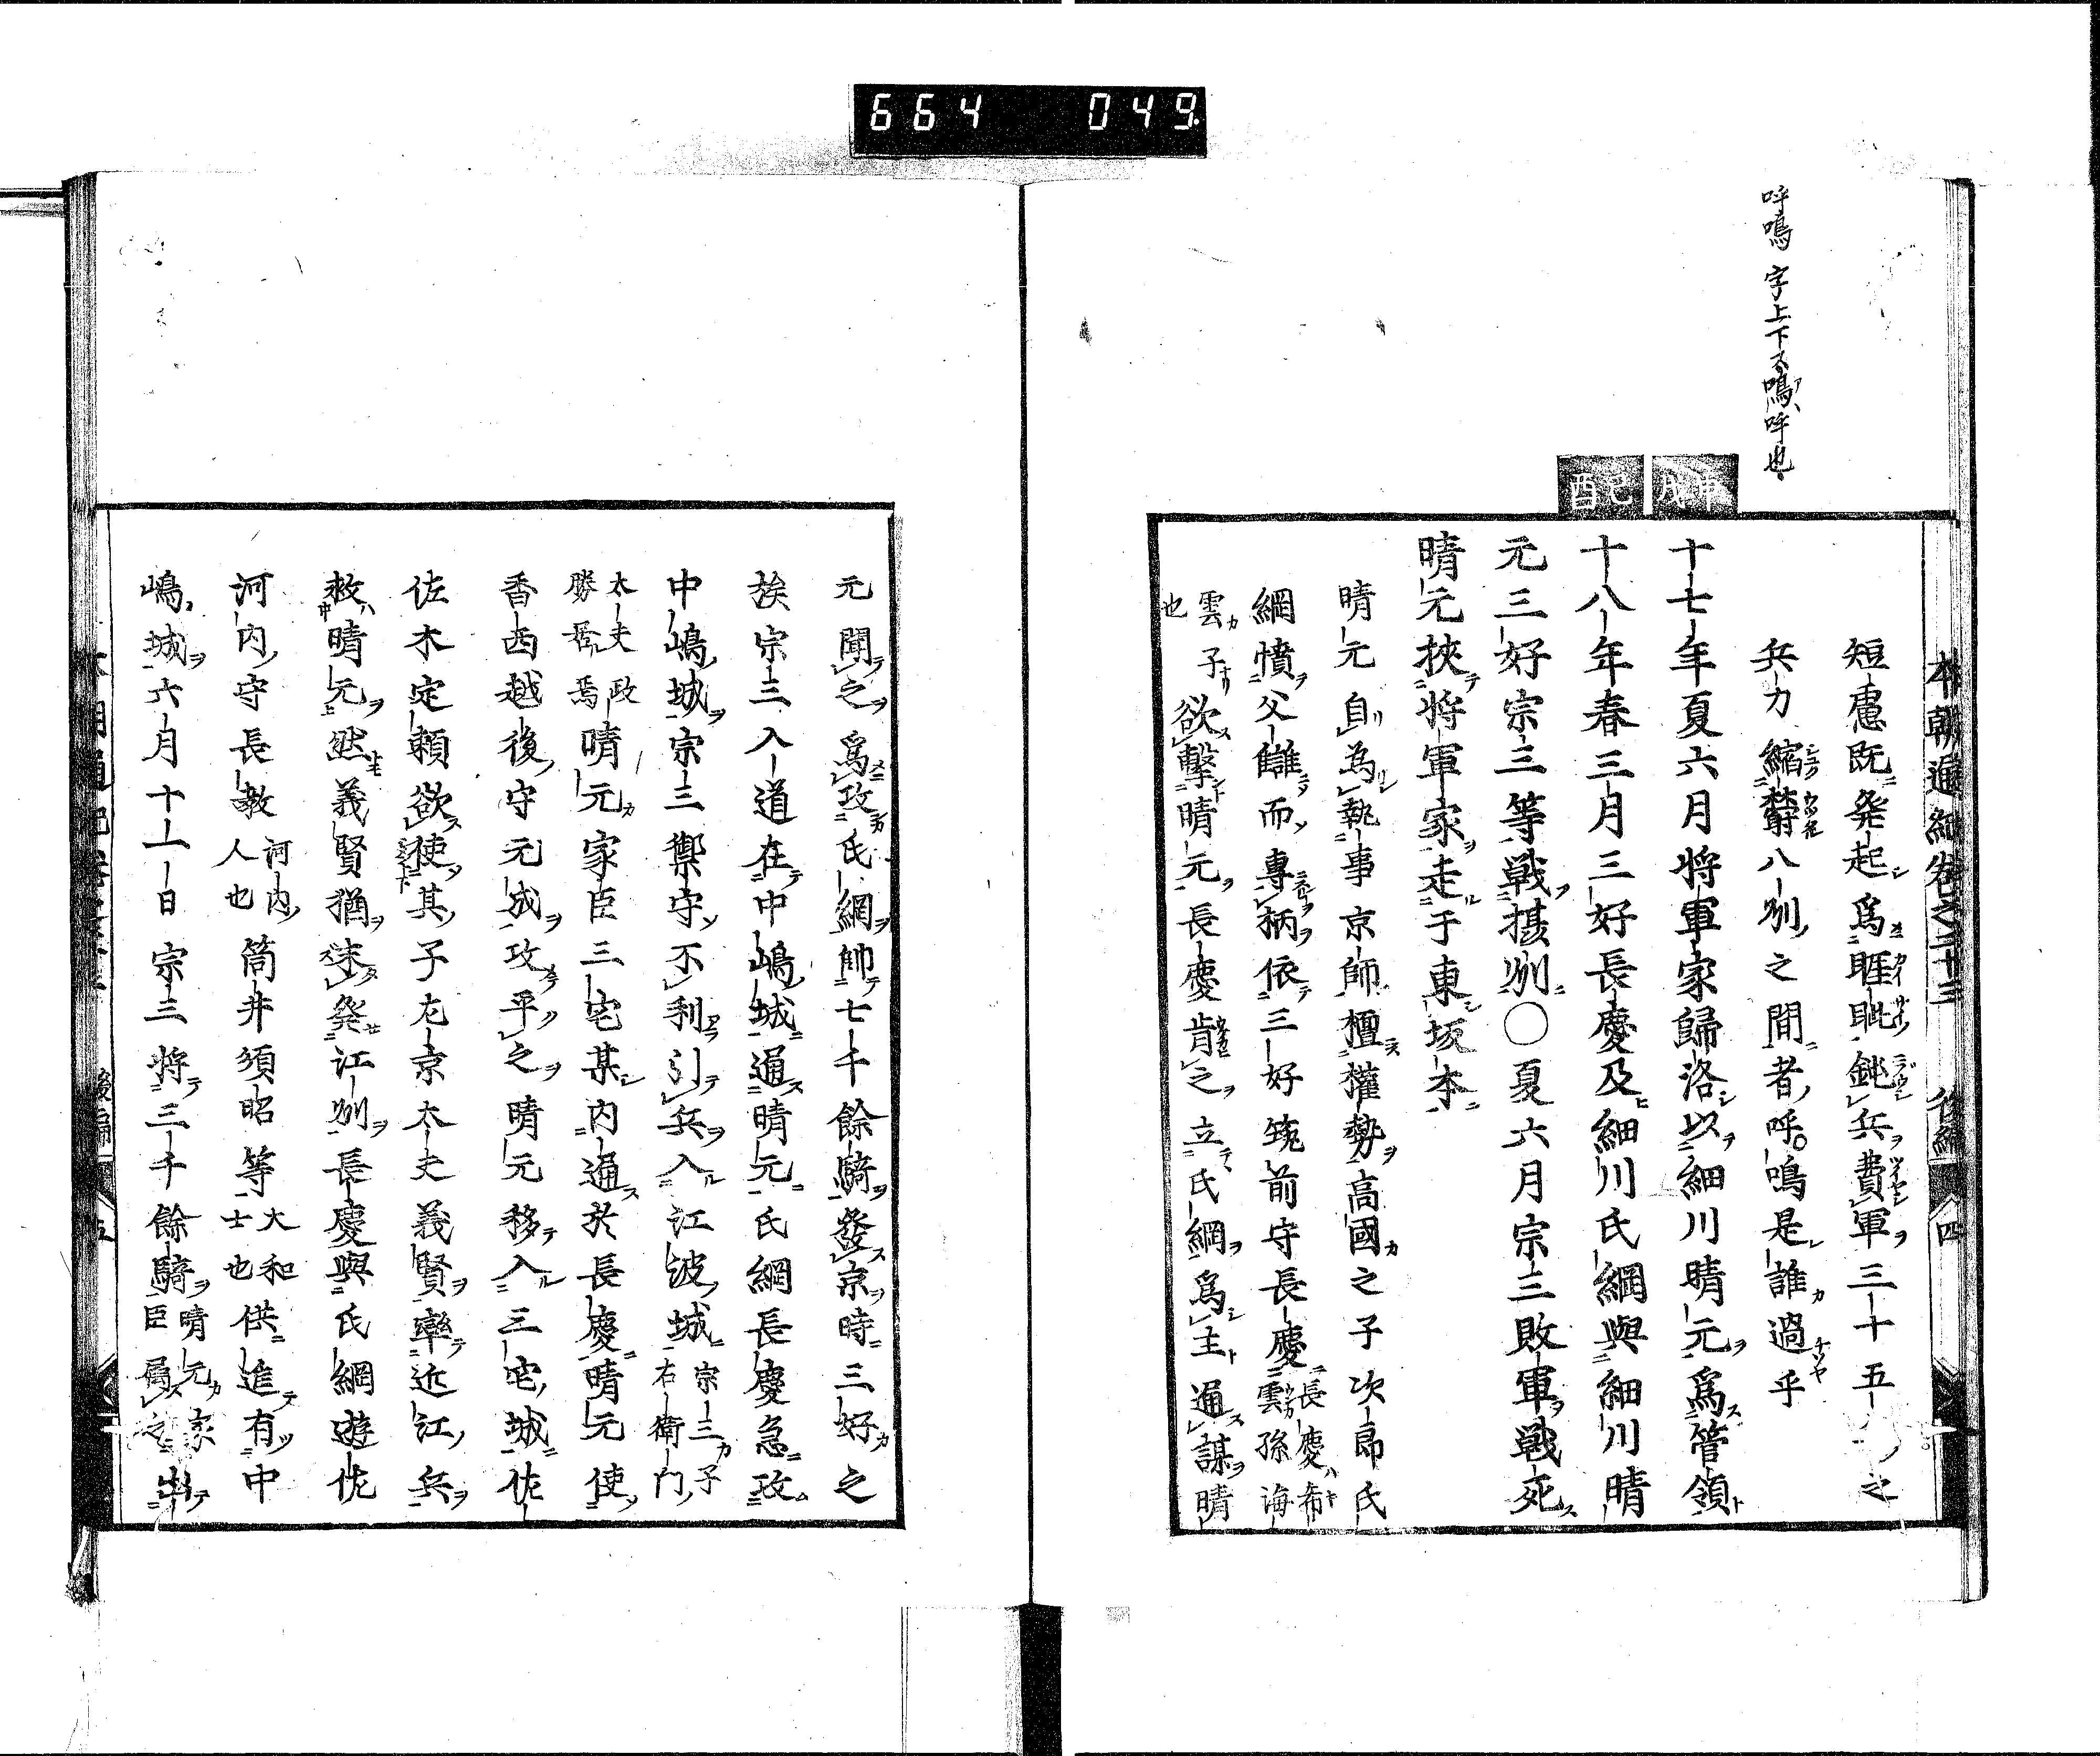 664 049
呼嗚 字上下 又嗚呼也
戊申
己酉
本朝通紀卷之二十三 後編 四
短慮既発起爲睚眦鈍兵費軍三十五之
兵力縮 八刕之間者呼嗚是誰過乎
十七年夏六月将軍家歸洛以細川晴元爲管領
十八年春三月三好長慶及細川氏綱與細川晴
元三好宗三等戦摂刕〇夏六月宗三敗軍戦死
晴元挾将軍家走于東坂本
晴元自為執事京師檀權勢高國之子次郎氏
綱憤父讎而專柄依三好筑前守長慶長慶希雲孫海
雲子也欲擊晴元長慶肯之立氏綱爲主通謀晴
元聞之爲攻氏綱帥七千餘騎發京時三好之
族宗三入道在中嶋城通晴元氏綱長慶急攻
中嶋城宗三禦守不利引兵入江波城宗三子右衛門
太夫政勝居焉晴元家臣三宅某内通於長慶晴元使
香西越後守元成攻平之晴元移入三宅城佐
佐木定頼欲使其子左京太夫義賢率近江兵
救晴元然義賢猶未発江刕長慶與氏綱遊佐
河内守長教河内人也筒井須昭等大和士也供進有中
嶋城六月十一日宗三将三千餘騎晴元家臣屬之出
後編 五